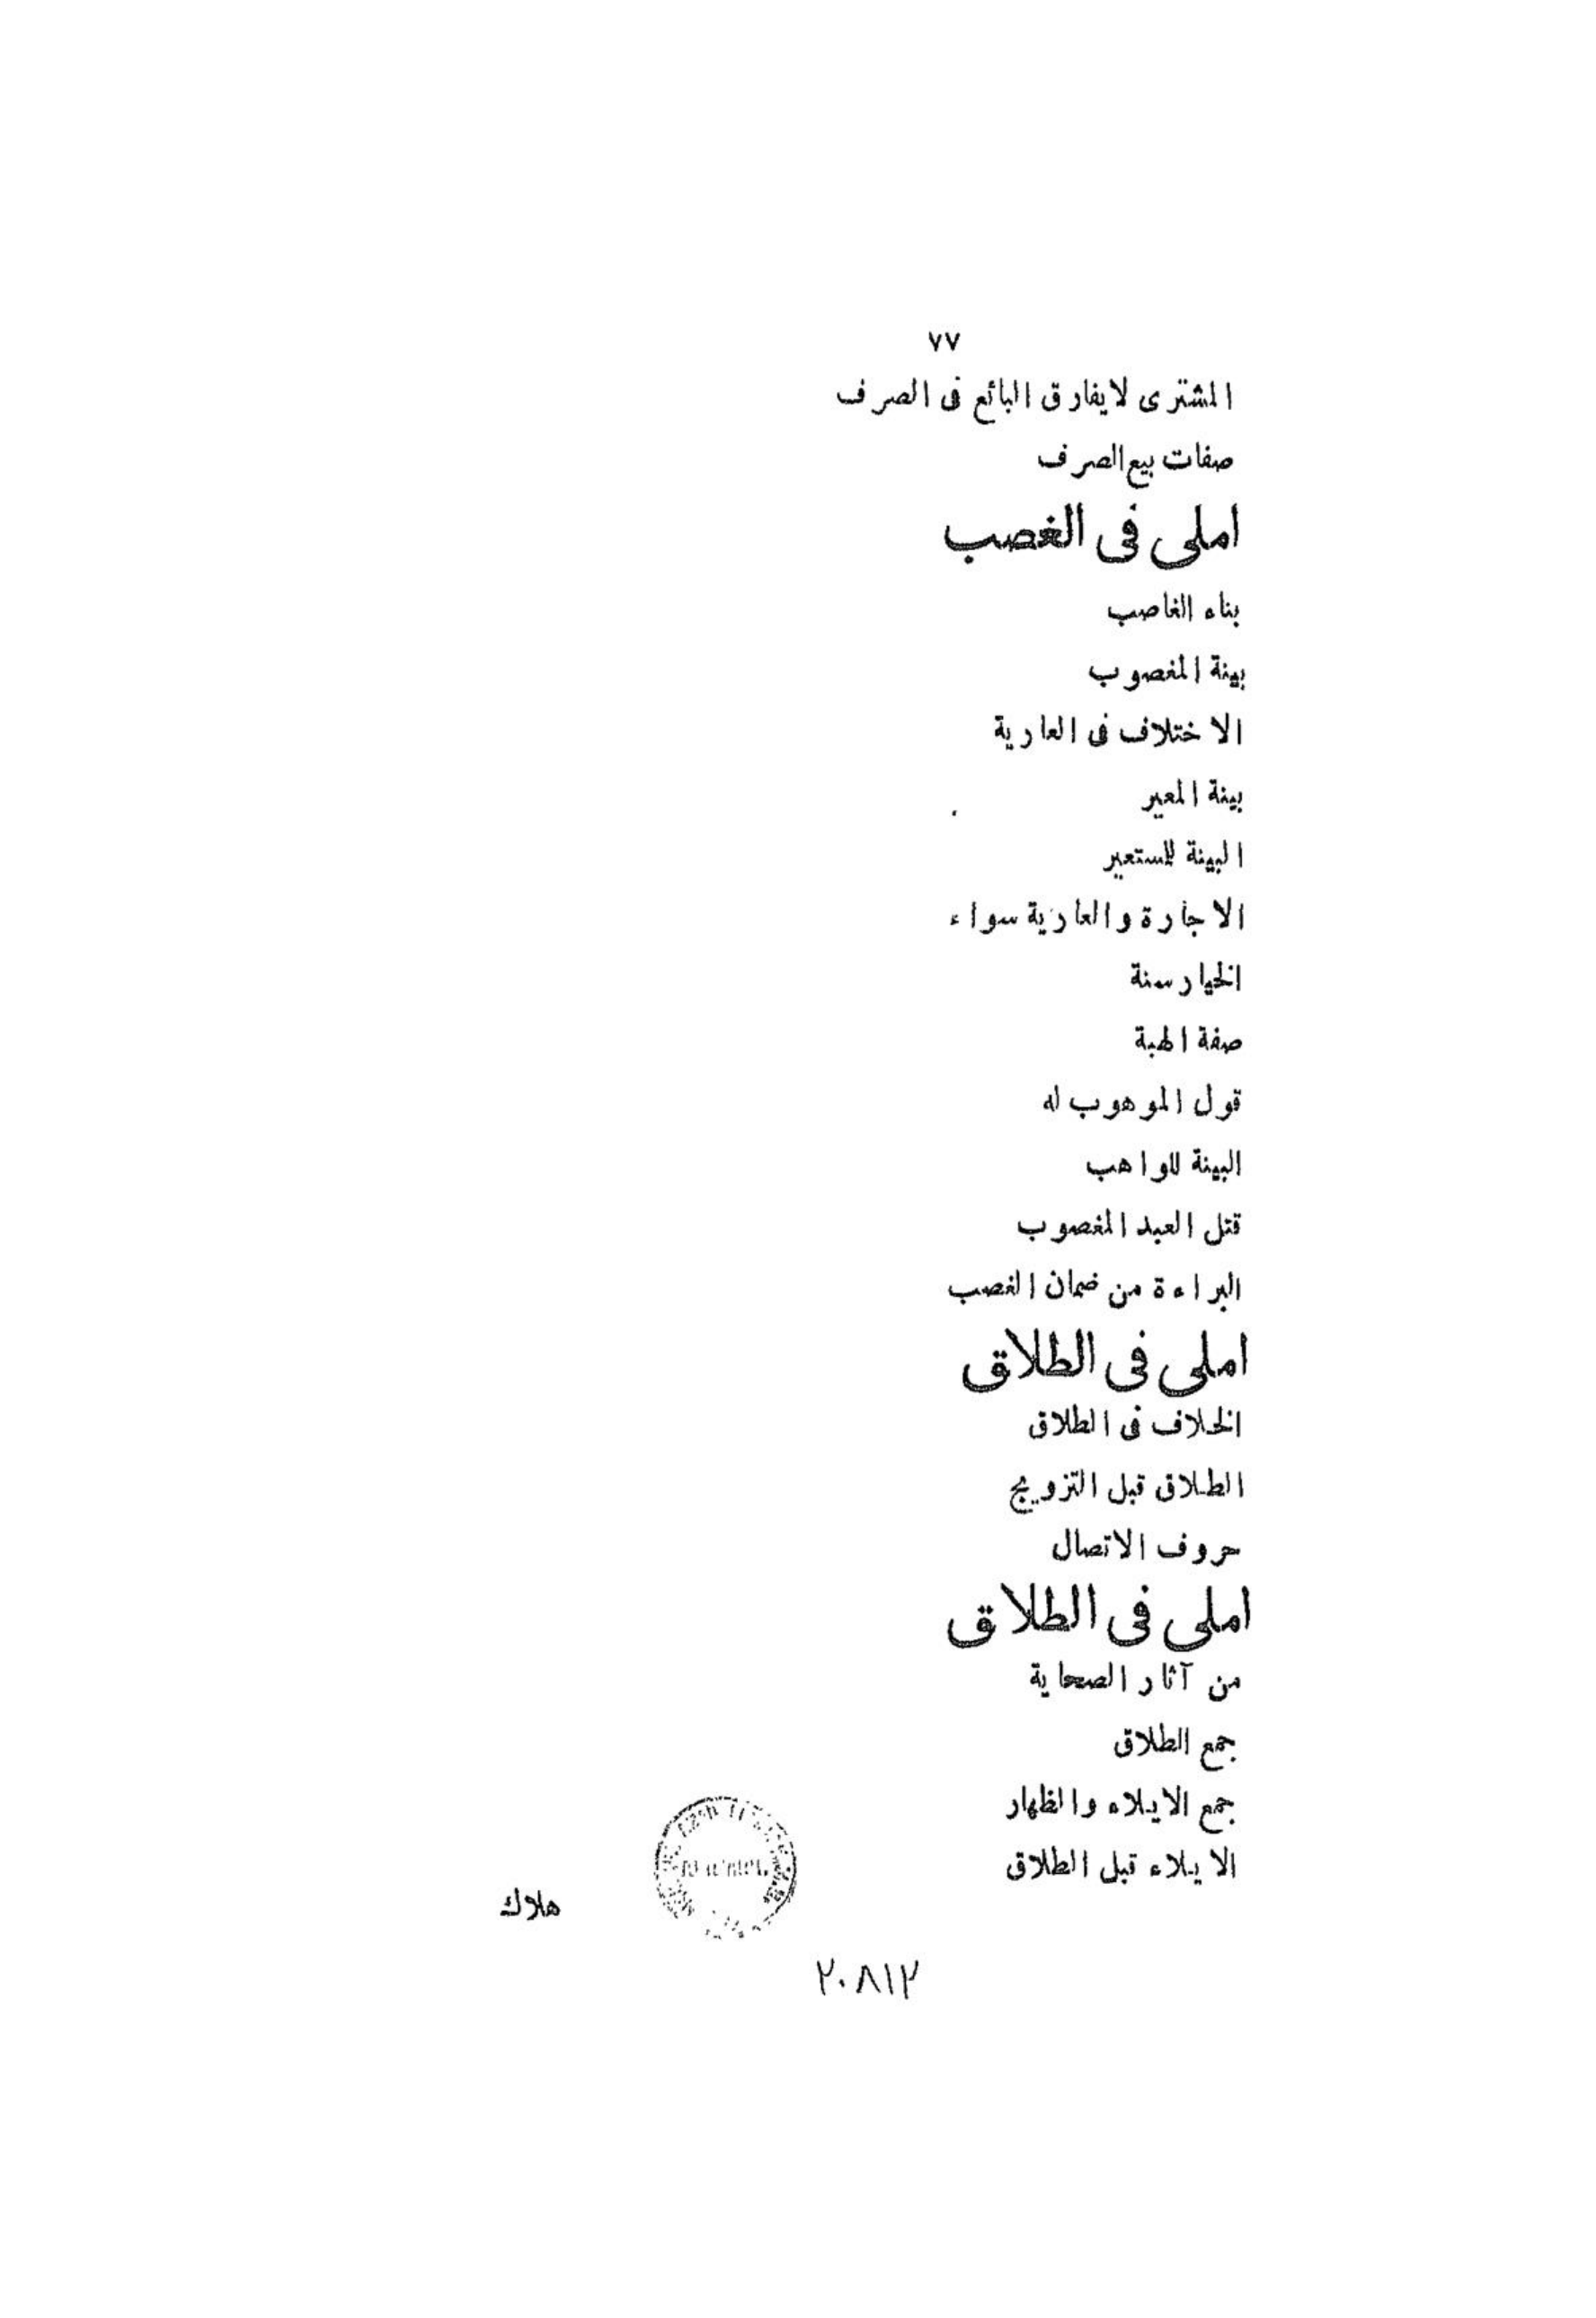 ٧٧
المشترى لايفارق البائع فى الصرف
صفات بيع الصرف
املى فى الغصب
بناء الغاصب
بينة المغصوب
الاختلاف فى العارية
بينة المعير
البينة للمستعير
الاجارة والعارية سواء
الخيار سنة
صفة الهبة
قول الموهوب له
البينة للواهب
قتل العبد المغصوب
البراءة من ضمان الغصب
املى فى الطلاق
الخلاف فى الطلاق
الطلاق قبل التزويج
حروف الاتصال
املى فى الطلاق
من آثار الصحاية
جمع الطلاق
جمع الايلاء والظهار
الايلاء قبل الطلاق
هلاك
٢٠٨١٢